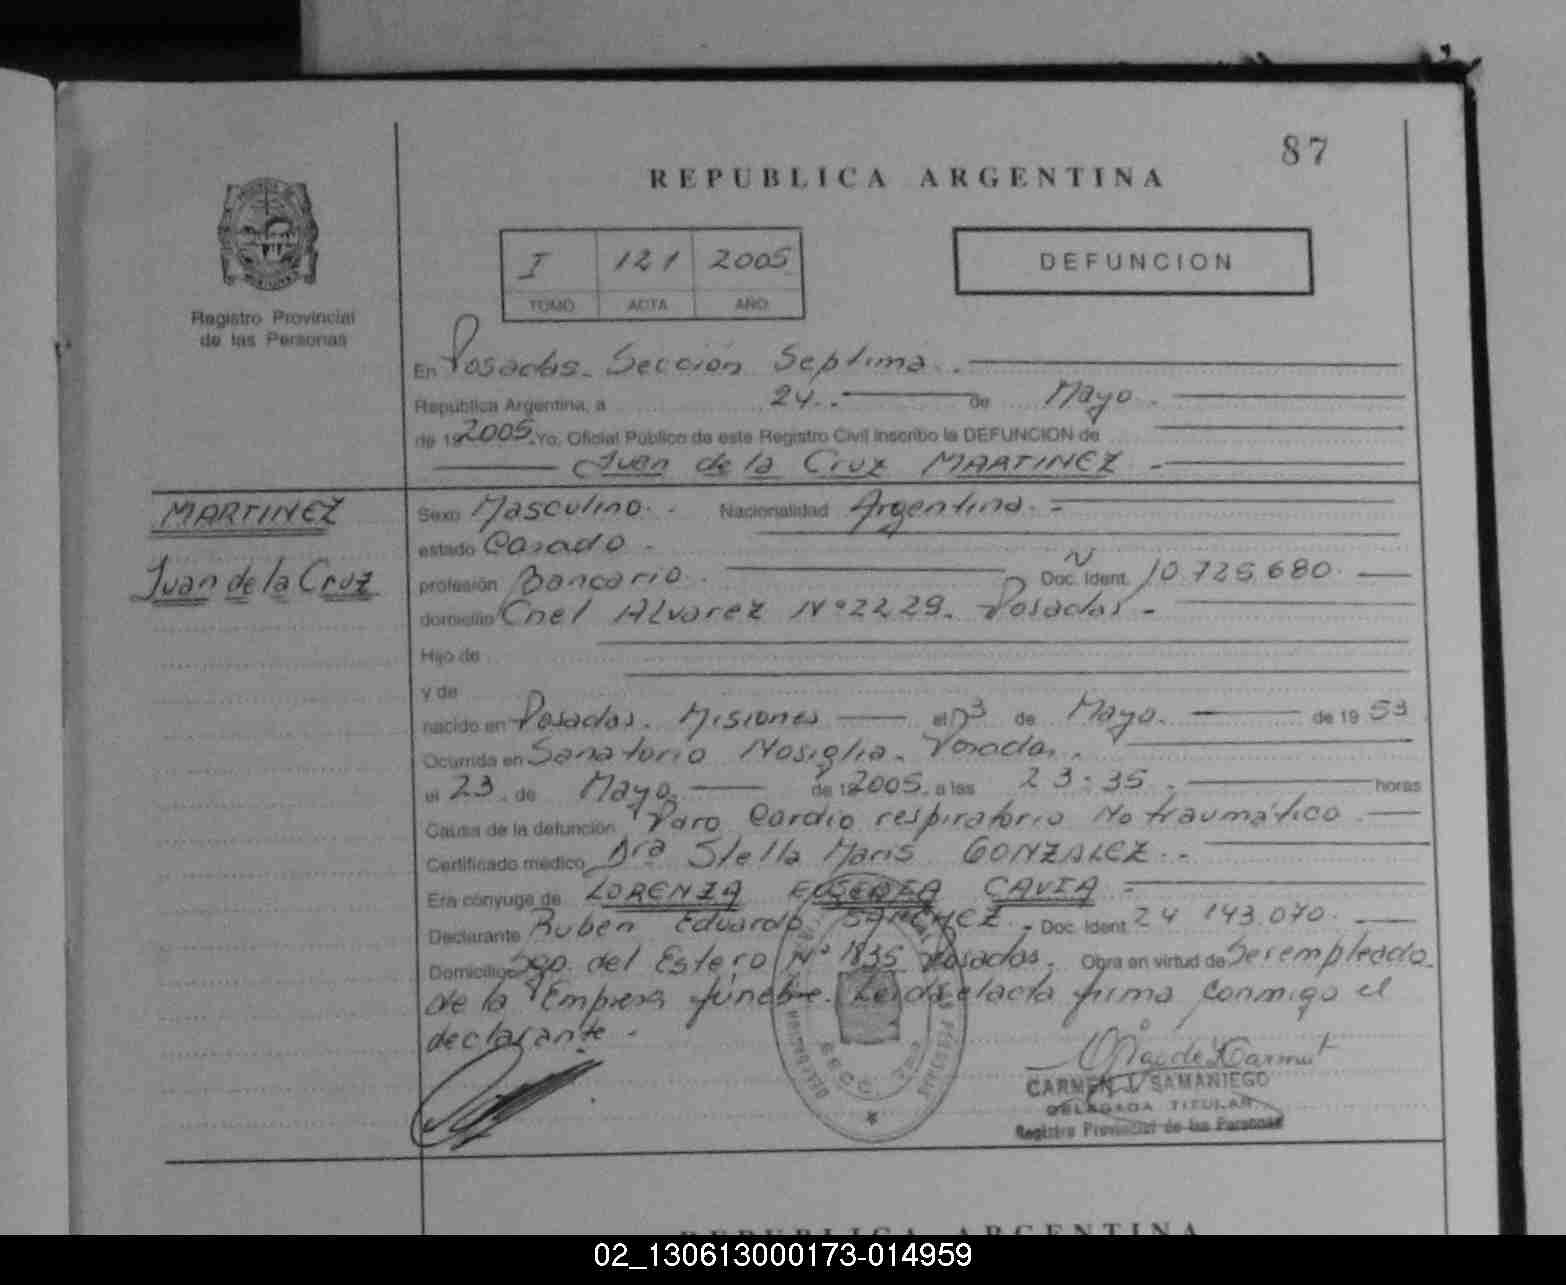 87
REPUBLICA ARGENTINA
I 121 2005
TOMO ACTA AÑO
DEFUNCION
Registro Provincial
de las Personas
En Posadas. Sección Septima.
República Argentina, a 24. de Mayo.
de 19 2005. Yo, Oficial Público de este Registro Civil inscribo la DEFUNCION de
Juan de la Cruz MARTINEZ
MARTINEZ
Juan de la Cruz
Sexo Masculino. Nacionalidad Argentina.
estado Casado
profesión Bancario. Doc. Ident. 10.725.680
domicilio Cnel Alvarez Nº 2229. Posadas
Hijo de
y de
nacido en Posadas. Misiones el 3 de Mayo. de 19 53
Ocurrida en Sanatorio Nosiglia. Posadas.
el 23 de Mayo de 2005. a las 23:35. horas
Causa de la defunción Paro Cardio respiratorio No traumático
Certificado médico Dra Stella Maris GONZALEZ.
Era cónyuge de LORENZA EUSEBIA CAVIA
Declarante Ruben Eduardo SANCHEZ. Doc. Ident. 24 143.070
Domicilio Sgo. del Estero Nº 1835 Posadas. Obra en virtud de Ser empleado
de la Empresa fúnebre. Leida el acta firma conmigo el
declarante.
CARMEN I. SAMANIEGO
DELEGADA TITULAR
Registro Provincial de las Personas
REPUBLICA ARGENTINA
02_130613000173-014959